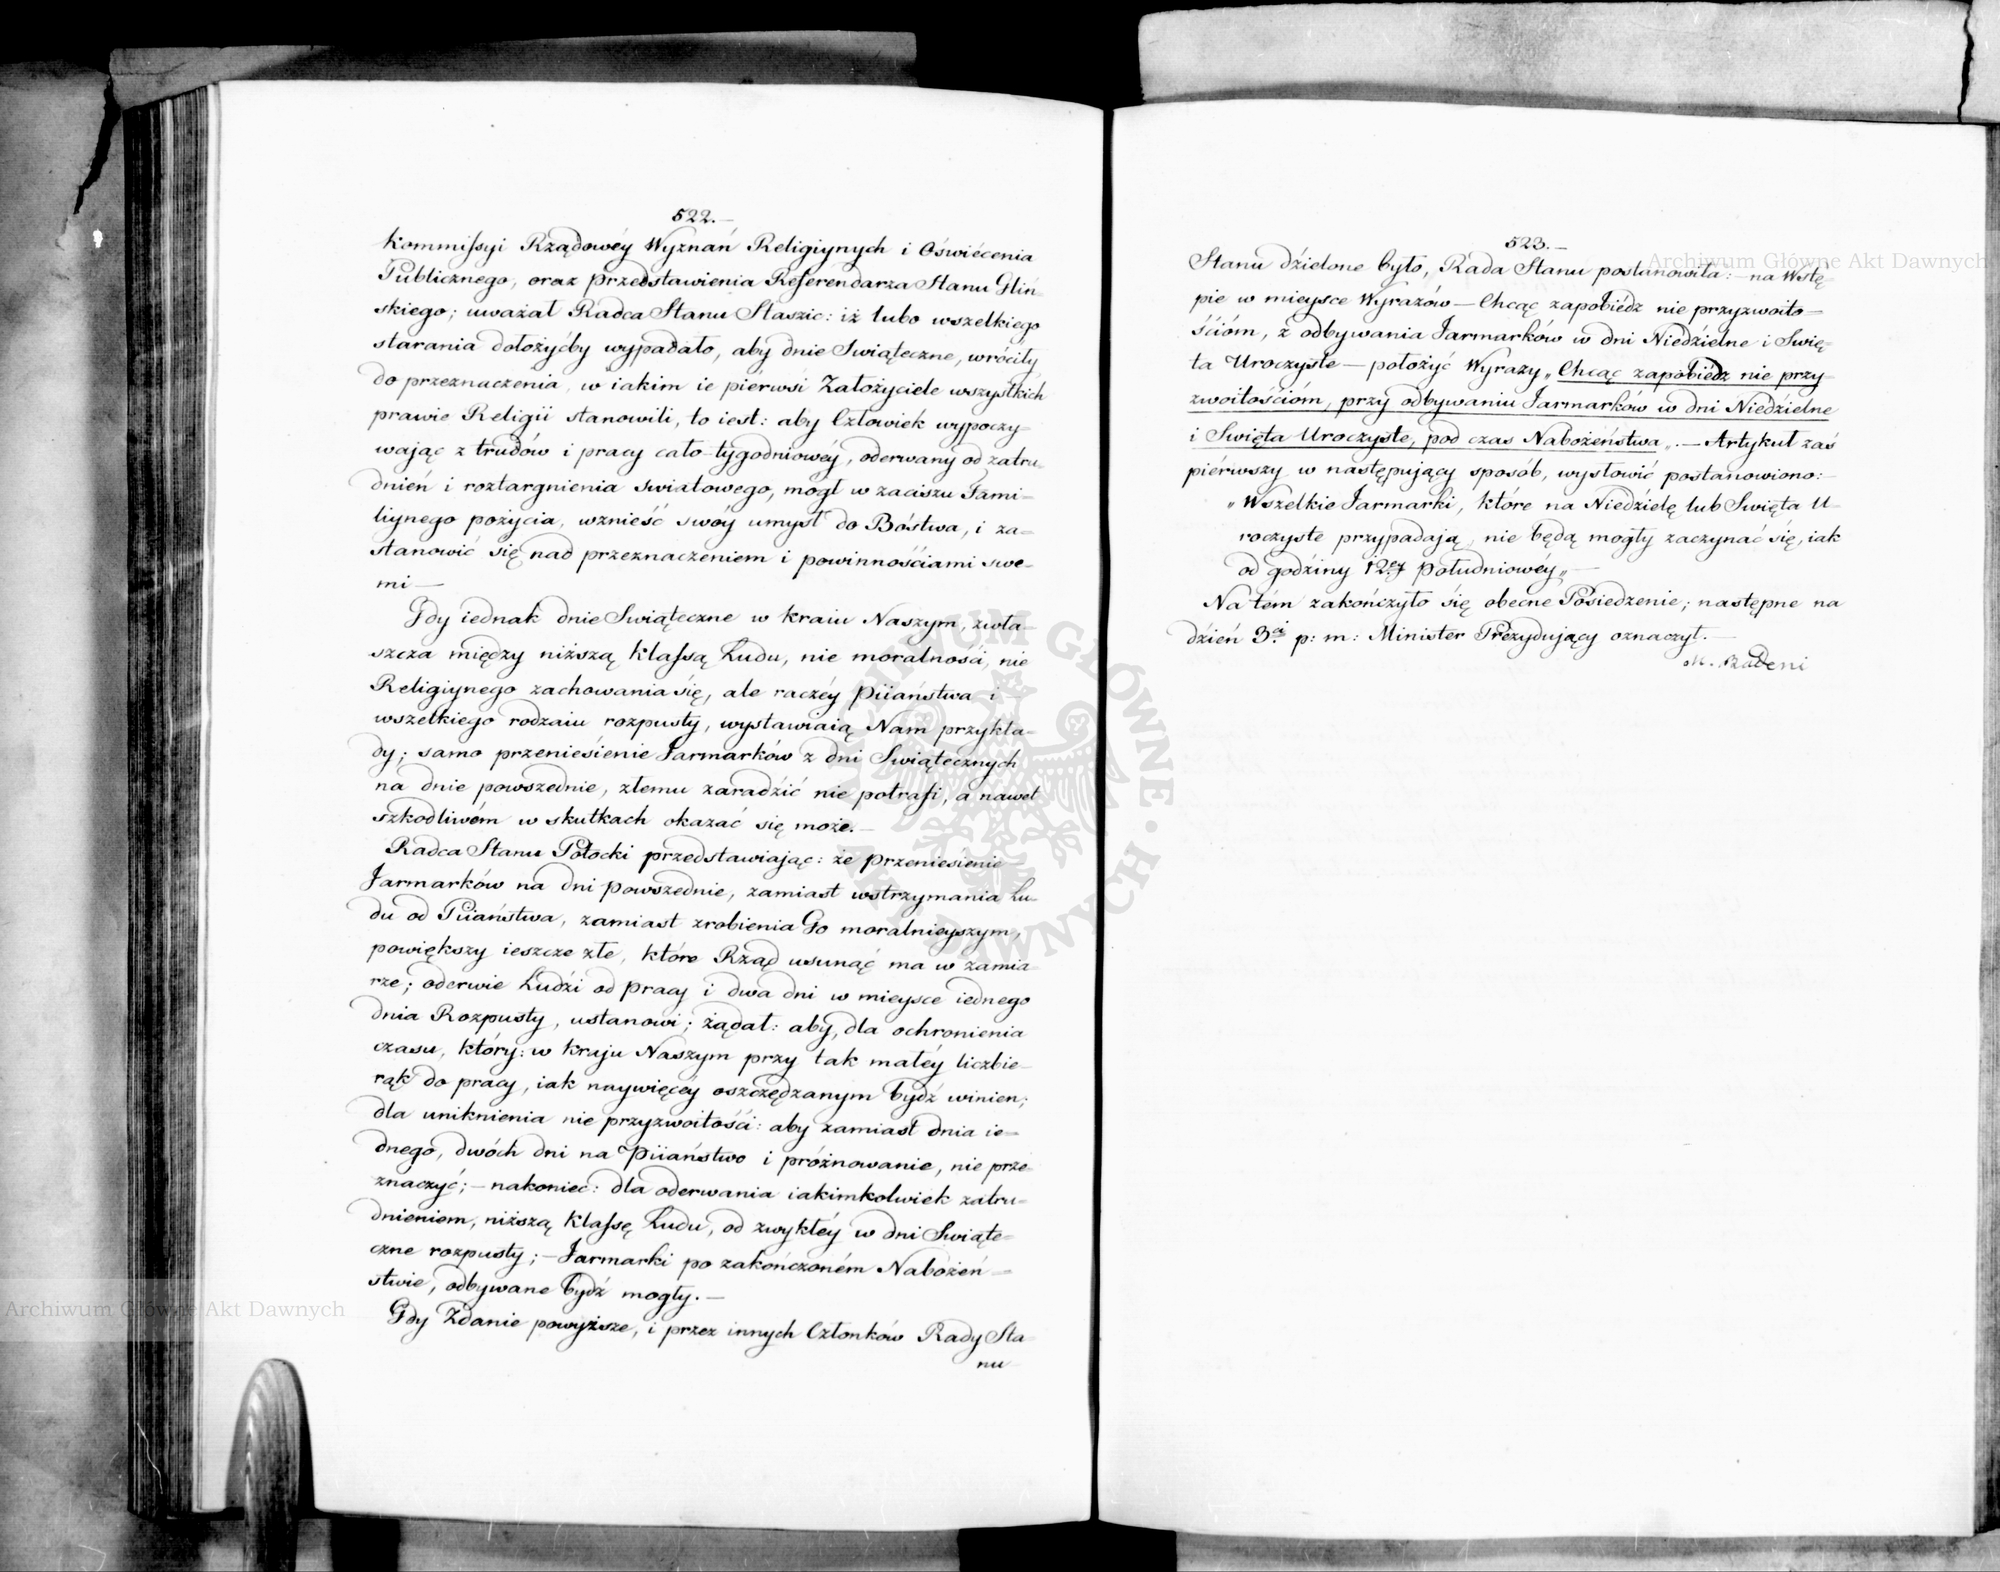 522.—
Kommissyi Rządowéy Wyznań Religiynych i Oświécenia
Publicznego, oraz przedstawienia Referendarza Stanu Gliń-
skiego; uważał Radca Stanu Staszic: iż lubo wszelkiego
starania dołożyćby wypadało, aby dnie Swiąteczne, wróciły
do przeznaczenia, w iakim ie piérwsi Założyciele wszystkich
prawie Religii stanowili, to iest: aby Człowiek wypoczy-
wając z trudów i pracy cało-tygodniowéy, oderwany od zatru-
dnień i roztargnienia swiatowego, mógł w zaciszu Fami-
liynego pożycia, wznieść swóy umysł do Bóstwa, i za-
stanowić się nad przeznaczeniem i powinnościami swe-
mi —
Gdy iednak dnie Swiąteczne w kraiu Naszym, zwła-
szcza między niższą klassą Ludu, nie moralności, nie
Religiynego zachowania się, ale raczéy Piiaństwa i
wszelkiego rodzaiu rozpusty, wystawiaią Nam przykła-
dy; samo przeniesienie Jarmarków z dni Swiątecznych
na dnie powszednie, złemu zaradzić nie potrafi, a nawet
szkodliwém w skutkach okazać się może.—
Radca Stanu Potocki przedstawiając: że przeniesienie
Jarmarków na dni powszednie, zamiast wstrzymania Lu-
du od Piiaństwa, zamiast zrobienia Go moralnieyszym,
powiększy ieszcze złe, które Rząd usunąć ma w zamia
rze; oderwie Ludzi od pracy i dwa dni w mieysce iednego
dnia Rozpusty, ustanowi; żądał: aby, dla ochronienia
czasu, który: w kraju Naszym przy tak małéy liczbie
rąk do pracy, iak naywięcéy oszczędzanym bydź winien;
dla uniknienia nie przyzwoitości: aby zamiast dnia ie-
dnego, dwóch dni na Piiaństwo i próżnowanie, nie prze-
znaczyć;— nakoniec: dla oderwania iakimkolwiek zatru-
dnieniem, niższą klassę Ludu, od zwykłéy w dni Swiąte-
czne rozpusty;— Jarmarki po zakończoném Nabożeń-
stwie, odbywane bydź mogły.—
Gdy Zdanie powyższe, i przez innych Członków Rady Sta
nu
523.—
Stanu dzielone było, Rada Stanu postanowiła:— na Wstę-
pie w mieysce Wyrazów — Chcąc zapobiedz nie przyzwoito-
ścióm, z odbywania Jarmarków w dni Niedzielne i Swię-
ta Uroczyste — położyć Wyrazy „Chcąc zapobiedz nie przy-
zwoitościóm, przy odbywaniu Jarmarków w dni Niedzielne
i Swięta Uroczyste, pod czas Nabożeństwa„.— Artykuł zaś
piérwszy w następujący sposób, wysłowić postanowiono:
„Wszelkie Jarmarki, które na Niedzielę lub Swięta U-
roczyste przypadają, nie będą mogły zaczynać się, iak
od godziny 12éy Południowey„—
Na tém zakończyło się obecne Posiedzenie; następne na
dzień 3ci p: m: Minister Prezydujący oznaczył.—
M. Badeni
Archiwum Główne Akt Dawnych
Archiwum Główne Akt Dawnych
ARCHIWUM GŁÓWNE AKT DAWNYCH